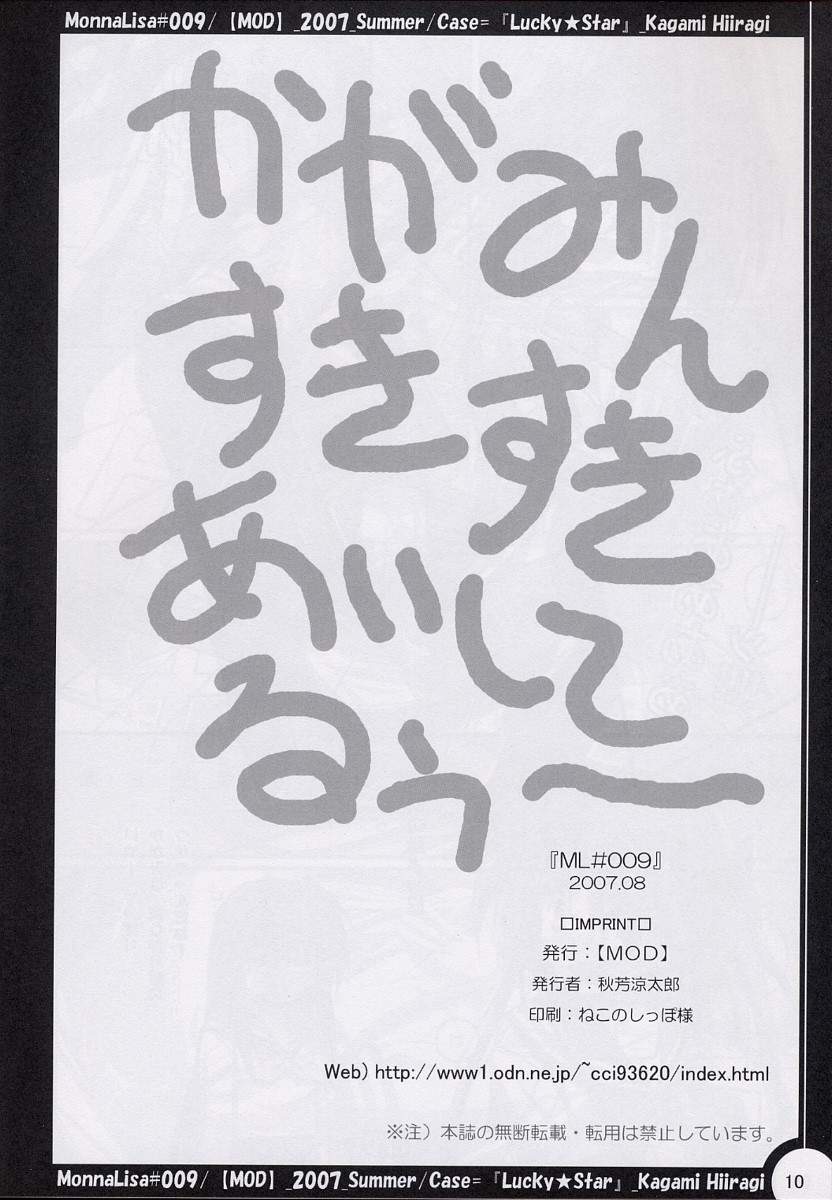 MonnaLisa#009/【MOD】_2007_Summer/Case=『Lucky★Star』_Kagami Hiiragi
かがみん
すきすき
あいして
るぅ～
『ML#009』
2007.08
□IMPRINT□
発行：【MOD】
発行者：秋芳涼太郎
印刷：ねこのしっぽ様
Web）http://www1.odn.ne.jp/~cci93620/index.html
※注）本誌の無断転載・転用は禁止しています。
MonnaLisa#009/【MOD】_2007_Summer/Case=『Lucky★Star』_Kagami Hiiragi
10